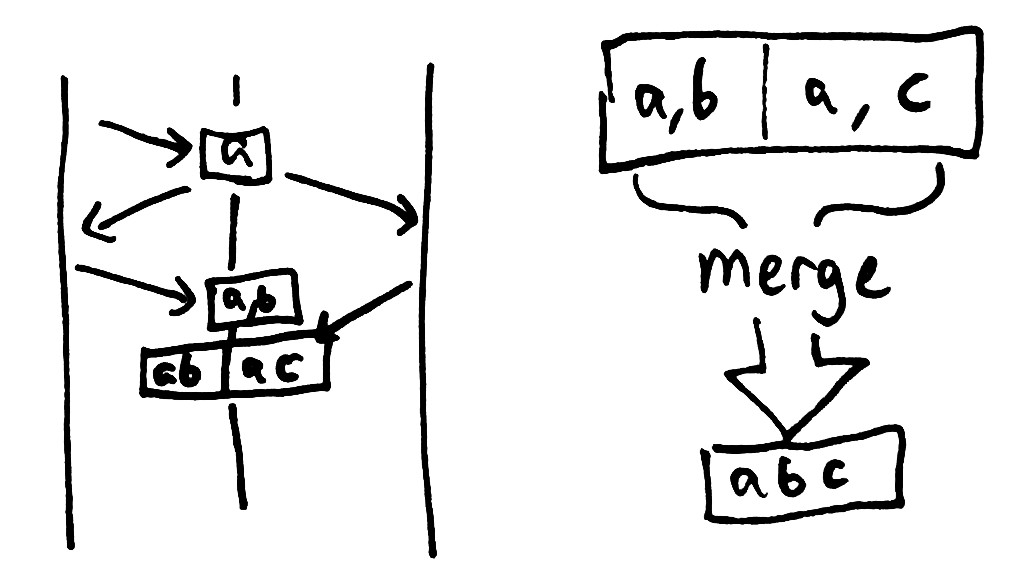 a
a,b
ab | ac
a,b | a, c
merge
abc